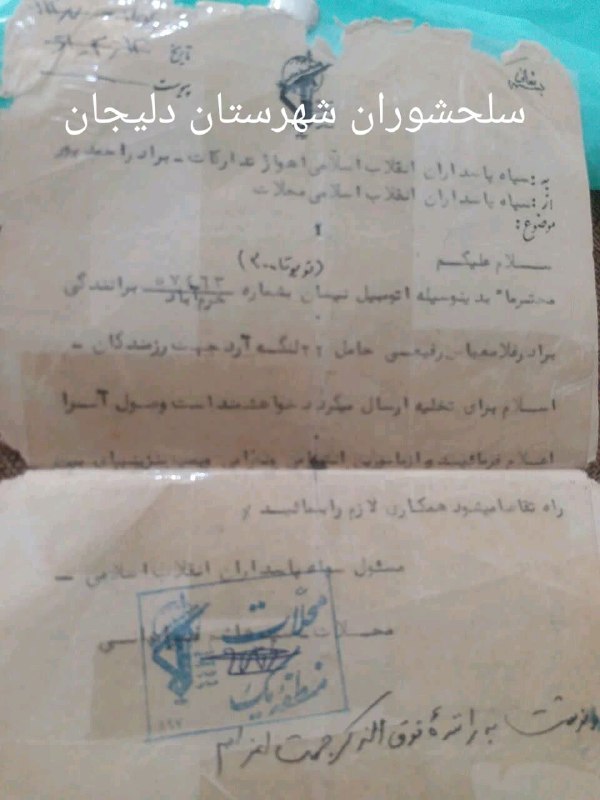 بسمه تعالی
تاریخ
پیوست
سلحشوران شهرستان دلیجان
به : سپاه پاسداران انقلاب اسلامی اهواز تدارکات - برادر احمد پور
از : سپاه پاسداران انقلاب اسلامی محلات
موضوع :
سلام علیکم
محترما" بدینوسیله اتومبیل نیسان بشماره خرم آباد برانندگی
برادر غلامعباس رفیعی حامل ۲۲ لنگه آرد جهت رزمندگان -
اسلام برای تخلیه ارسال میگردد خواهشمند است وصول آنرا
اعلام فرمائید و از مامورین انتظامی
راه تقاضا میشود همکاری لازم را بنمائید /
مسئول سپاه پاسداران انقلاب اسلامی -
محلات
محلات
منطقه یک
برگشت به راننده فوق الذکر جهت اعزام